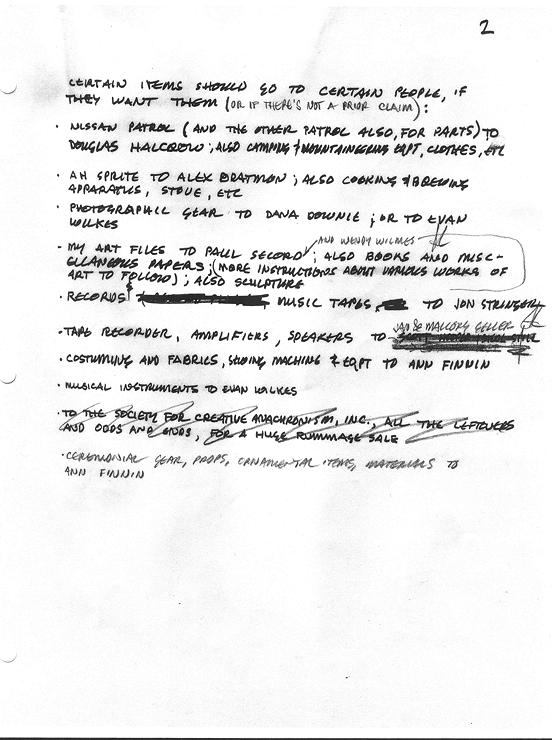 2
CERTAIN ITEMS SHOULD GO TO CERTAIN PEOPLE, IF
THEY WANT THEM (OR IF THERE'S NOT A PRIOR CLAIM):
· NISSAN PATROL (AND THE OTHER PATROL ALSO, FOR PARTS) TO
DOUGLAS HALCROW; ALSO CAMPING & MOUNTAINEERING EQPT, CLOTHES, ETC
· AH SPRITE TO ALEX BRATMON; ALSO COOKING & BREWING
APPARATUS, STOVE, ETC
· PHOTOGRAPHIC GEAR TO DANA DOWNIE; OR TO EVAN
WILKES
AND WENDY WILMES
· MY ART FILES TO PAUL SECORD; ALSO BOOKS AND MISC-
ELLANEOUS PAPERS; (MORE INSTRUCTIONS ABOUT VARIOUS WORKS OF
ART TO FOLLOW); ALSO SCULPTURE
· RECORDS & MUSIC TAPES, TO JON STRINGER
· TAPE RECORDER, AMPLIFIERS, SPEAKERS TO MALLORY GELLER
· COSTUMING AND FABRICS, SEWING MACHINE & EQPT TO ANN FINNIN
· MUSICAL INSTRUMENTS TO EVAN WILKES
· TO THE SOCIETY FOR CREATIVE ANACHRONISM, INC., ALL THE LEFTOVERS
AND ODDS AND ENDS, FOR A HUGE RUMMAGE SALE
· CEREMONIAL GEAR, PROPS, ORNAMENTAL ITEMS, MATERIALS TO
ANN FINNIN